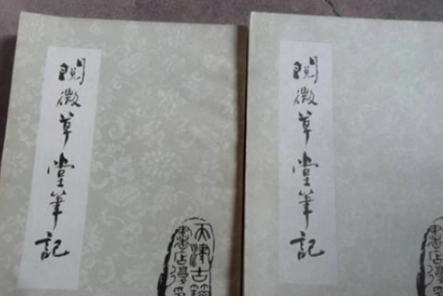 閱微草堂筆記
天津古籍
書店
閱微草堂筆記
書店